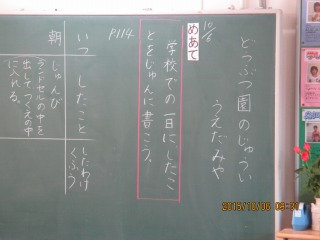 10/6
どうぶつ園のじゅうい
うえだみや
めあて
学校での一日にしたこ
とをじゅんに書こう。
P114
いつ
したこと
したわけ
くふう
朝
じゅんび
ランドセルの中を
出してつくえの中
に入れる。
2015/10/06 09:37